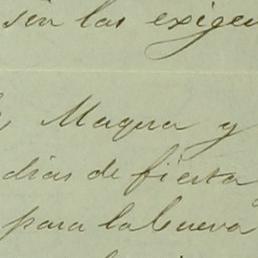 sin las exigen
Maqua y
dias de fiesta
para la Cueva